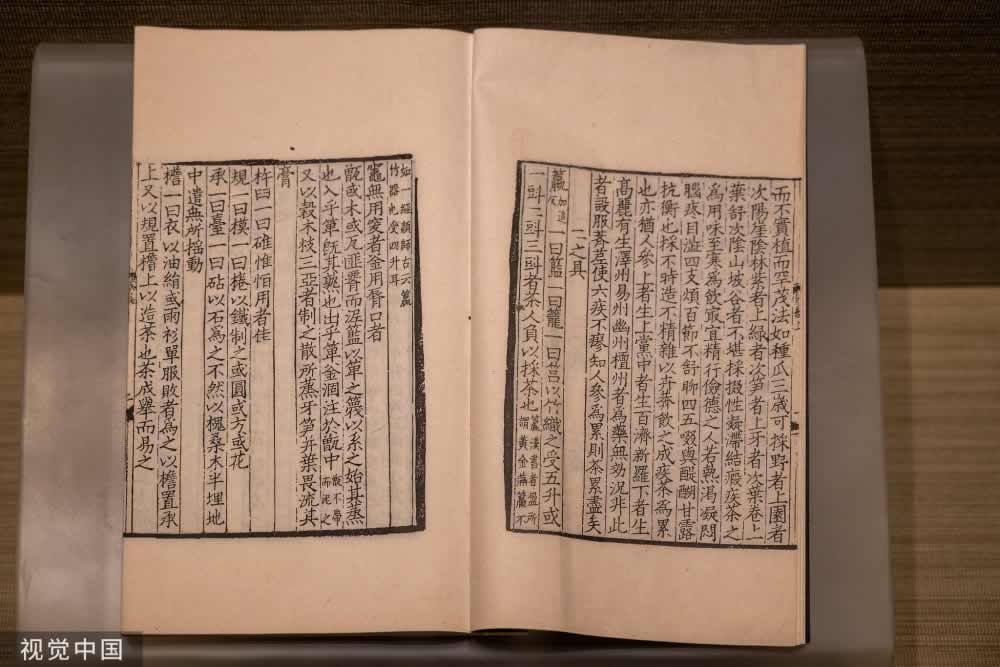 而不實植而罕茂法如種瓜三歲可採野者上園者
次陽崖陰林紫者上綠者次笋者上牙者次葉卷上
葉舒次陰山坡谷者不堪採掇性凝滯結瘕疾茶之
為用味至寒為飲最宜精行儉德之人若熱渴凝悶
腦疼目澁四支煩百節不舒聊四五啜與醍醐甘露
抗衡也採不時造不精雜以卉莽飲之成疾茶為累
也亦猶人參上者生上黨中者生百濟新羅下者生
高麗有生澤州易州幽州檀州者為藥無効況非此
者設服薺苨使六疾不瘳知人參為累則茶累盡矣
二之具
籯加追反一曰籃一曰籠一曰筥以竹織之受五升或
一㪷二㪷三㪷者茶人負以採茶也籯漢書音盈所謂黃金滿籯不
如一經顏師古云籯竹器也受四升耳
竈無用突者釜用脣口者
甑或木或瓦匪腰而泥籃以箄之篾以系之始其蒸
也入乎箄既其熟也出乎箄釜涸注於甑中甑不帶而泥之
又以榖木枝三亞者制之散所蒸牙笋并葉畏流其
膏
杵臼一曰碓惟恒用者佳
規一曰模一曰棬以鐵制之或圓或方或花
承一曰臺一曰砧以石為之不然以槐桑木半埋地
中遣無所搖動
檐一曰衣以油絹或雨衫單服敗者為之以檐置承
上又以規置檐上以造茶也茶成舉而易之
视觉中国